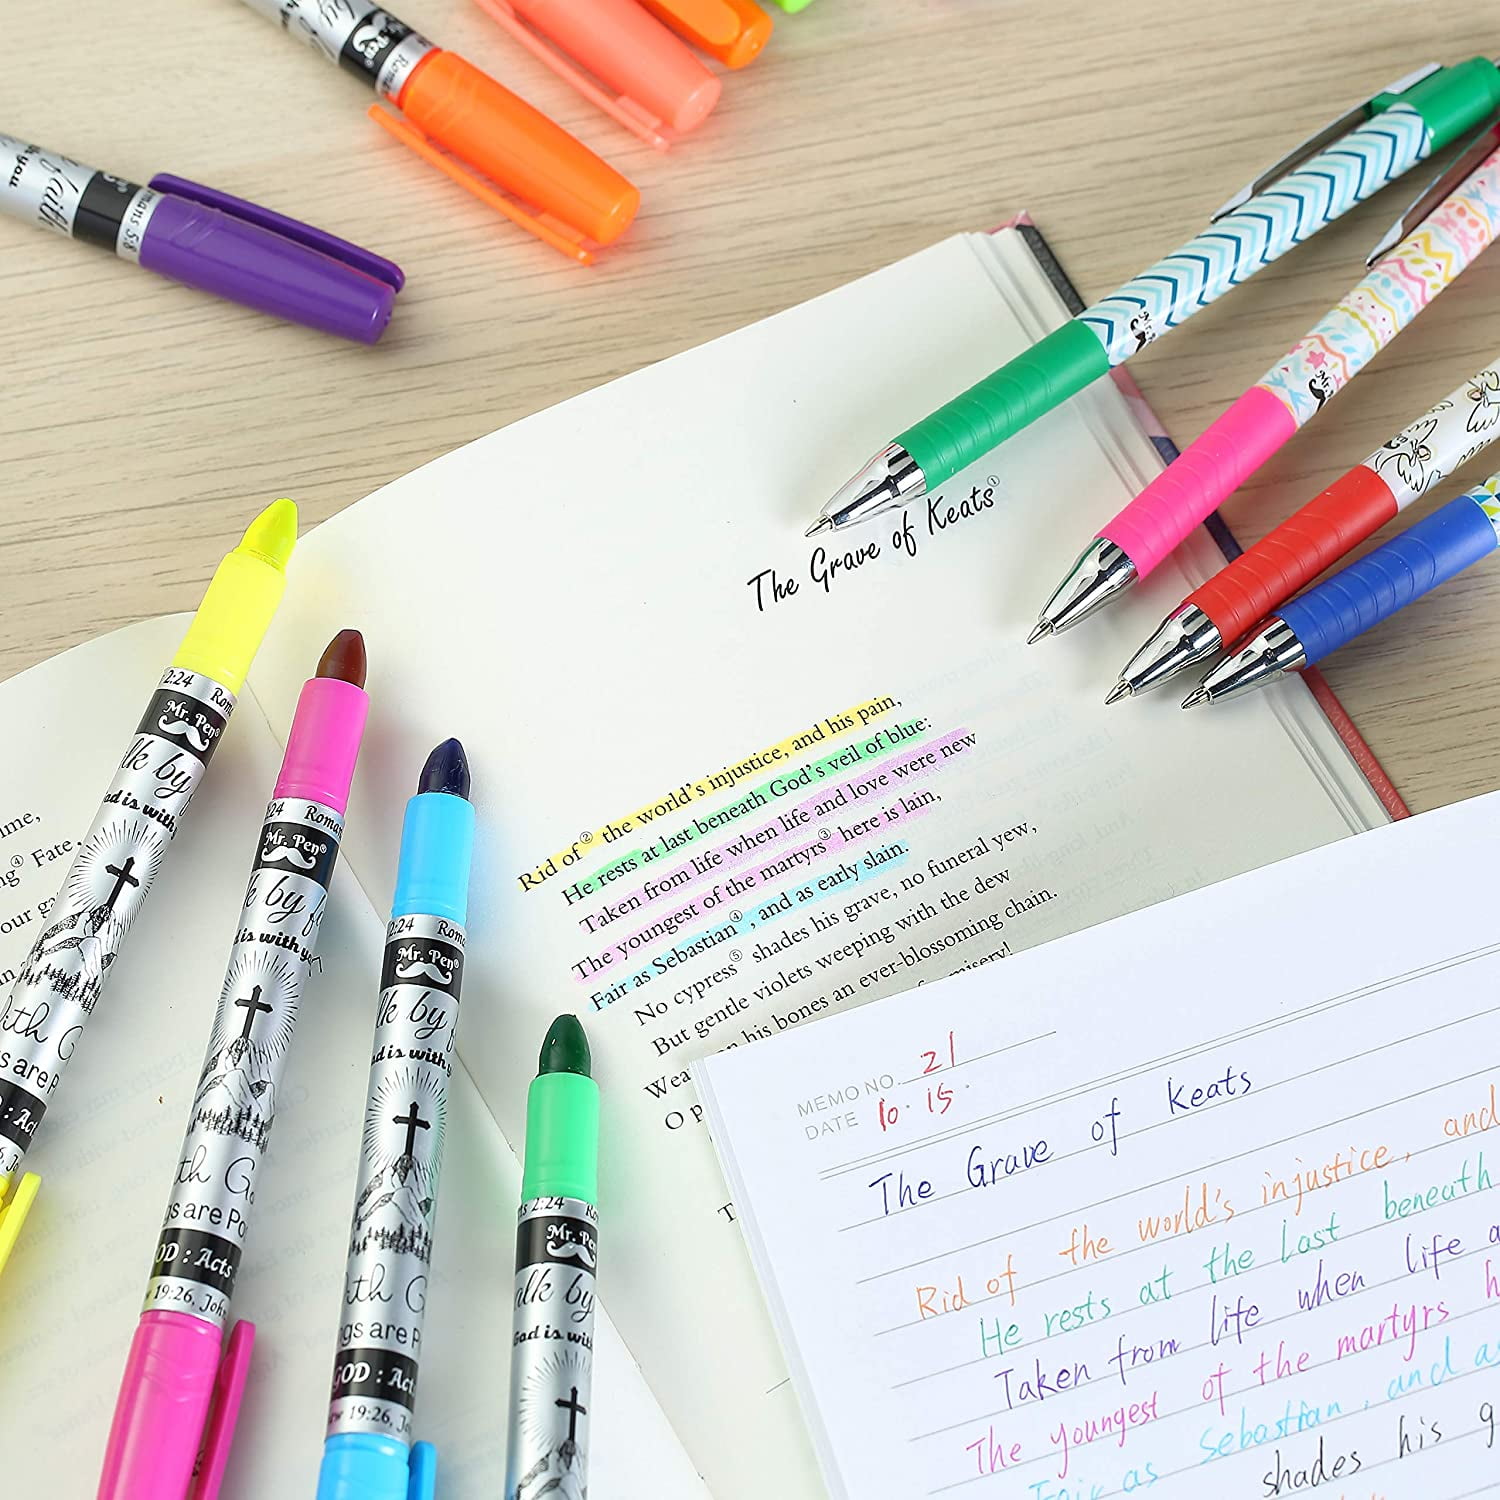 Romans 5:8
faith
The Grave of Keats①
Rid of② the world's injustice, and his pain,
He rests at last beneath God's veil of blue:
Taken from life when life and love were new
The youngest of the martyrs③ here is lain,
Fair as Sebastian④, and as early slain.
No cypress⑤ shades his grave, no funeral yew,
But gentle violets weeping with the dew
on his bones an ever-blossoming chain.
misery!
O
④ Fate,
your
2:24
Mr. Pen®
by
God is with
with
are
: Act
2:24 Roma
Mr. Pen®
by
is with you
are
OD : Acts
19:26, John
2:24 Roma
Mr. Pen®
by
is with
are
GOD : Act
19:26, Joh
2:24
Mr. Pen
by
God is with
MEMO NO. 21
DATE 10.15.
The Grave of Keats
Rid of the world's injustice, and
He rests at the last beneath
Taken from life when life a
The youngest of the martyrs h
Fair as Sebastian, and as
shades his g